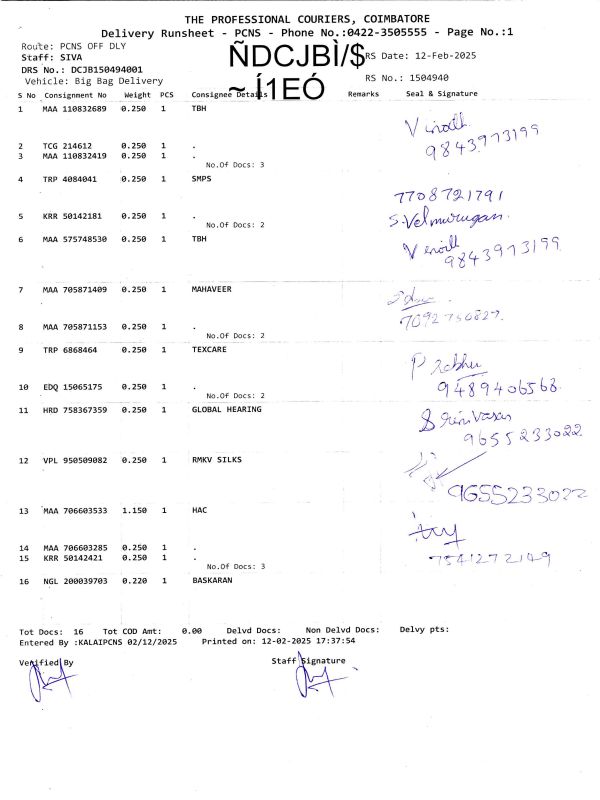 THE PROFESSIONAL COURIERS, COIMBATORE
Delivery Runsheet - PCNS - Phone No.:0422-3505555 - Page No.:1
Route: PCNS OFF DLY
Staff: SIVA
ÑDCJBÌ/$
RS Date: 12-Feb-2025
DRS No.: DCJB150494001
Vehicle: Big Bag Delivery
~ Í1EÓ
RS No.: 1504940
S No Consignment No Weight PCS Consignee Details Remarks Seal & Signature
1 MAA 110832689 0.250 1 TBH
9843973199
2 TCG 214612 0.250 1 .
3 MAA 110832419 0.250 1 .
No.Of Docs: 3
4 TRP 4084041 0.250 1 SMPS
7708721791
5 KRR 50142181 0.250 1 .
S.Velmurugan.
No.Of Docs: 2
6 MAA 575748530 0.250 1 TBH
9843973199
7 MAA 705871409 0.250 1 MAHAVEER
8 MAA 705871153 0.250 1 .
No.Of Docs: 2
9 TRP 6868464 0.250 1 TEXCARE
Prabhu
10 EDQ 15065175 0.250 1 .
9489406568
No.Of Docs: 2
11 HRD 758367359 0.250 1 GLOBAL HEARING
Srinivasan
9655233022
12 VPL 950509082 0.250 1 RMKV SILKS
9655233022
13 MAA 706603533 1.150 1 HAC
14 MAA 706603285 0.250 1 .
15 KRR 50142421 0.250 1 .
7541272149
No.Of Docs: 3
16 NGL 200039703 0.220 1 BASKARAN
Tot Docs: 16 Tot COD Amt: 0.00 Delvd Docs: Non Delvd Docs: Delvy pts:
Entered By :KALAIPCNS 02/12/2025 Printed on: 12-02-2025 17:37:54
Verified By Staff Signature